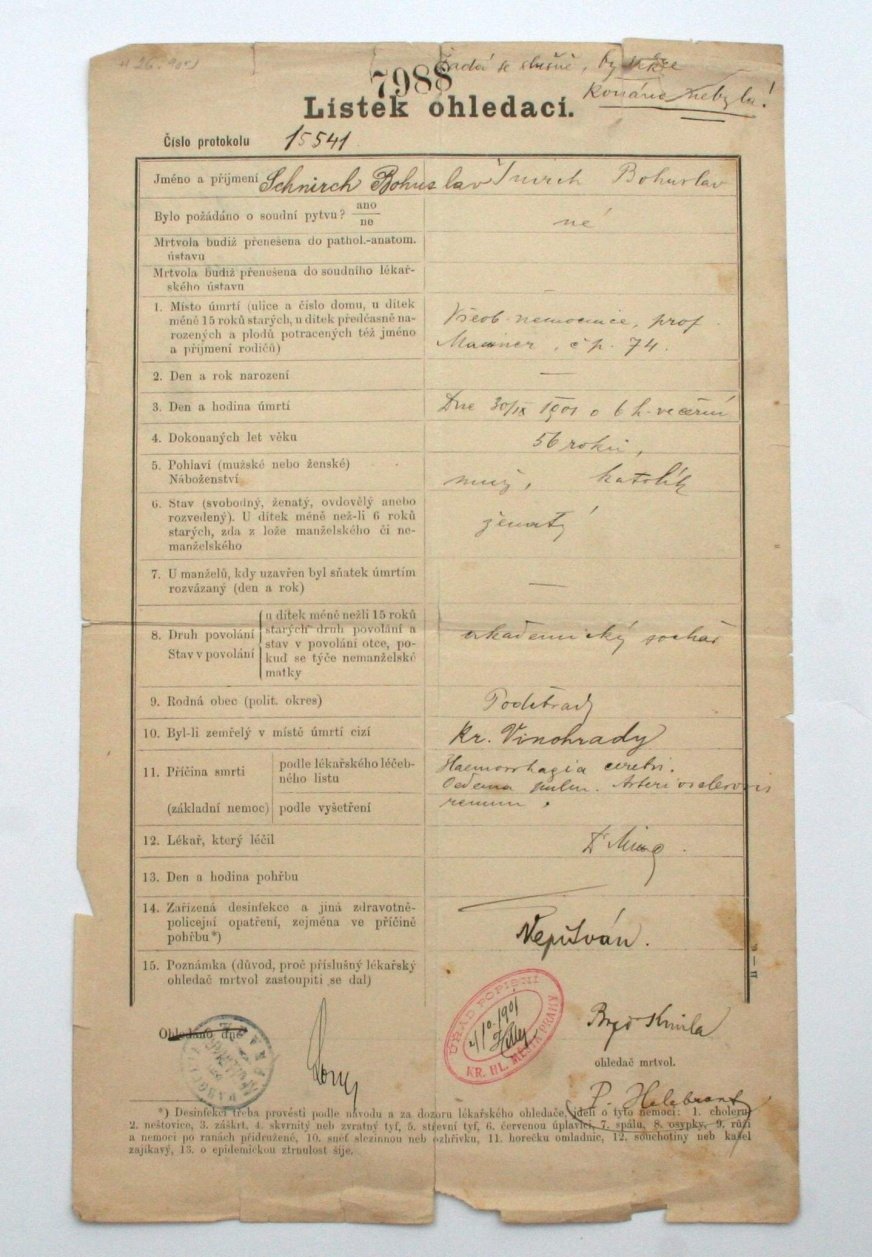 7988
Žádá se slušně, by
konáno nebyla!
Lístek ohledací.
Číslo protokolu 15541
Jméno a příjmení Schnirch Bohuslav Bohuslav
Bylo požádáno o soudní pytvu? ano
ne
né
Mrtvola budiž přenešena do pathol.-anatom.
ústavu
Mrtvola budiž přenešena do soudního lékař-
ského ústavu
1. Místo úmrtí (ulice a číslo domu, u dítek
méně 15 roků starých, u dítek předčasně na-
rozených a plodů potracených též jméno
a příjmení rodičů)
Všeob. nemocnice, prof.
č p. 74.
2. Den a rok narození
—
3. Den a hodina úmrtí
Dne 30/IX 1901 o 6 h. večerní
4. Dokonaných let věku
56 roků,
5. Pohlaví (mužské nebo ženské)
Náboženství
muž, katolík
6. Stav (svobodný, ženatý, ovdovělý anebo
rozvedený). U dítek méně než-li 6 roků
starých, zda z lože manželského či ne-
manželského
ženatý
7. U manželů, kdy uzavřen byl sňatek úmrtím
rozvázaný (den a rok)
—
8. Druh povolání
Stav v povolání
u dítek méně nežli 15 roků
starých druh povolání a
stav v povolání otce, po-
kud se týče nemanželské
matky
akademický sochař
9. Rodná obec (polit. okres)
Poděbrady
10. Byl-li zemřelý v místě úmrtí cizí
Kr. Vinohrady
11. Příčina smrti
(základní nemoc)
podle lékařského léčeb-
ného listu
podle vyšetření
Haemorrhagia cerebri.
Oedema pulm. Arteriosclerosis
renum.
12. Lékař, který léčil
Dr
13. Den a hodina pohřbu
14. Zařízená desinfekce a jiná zdravotně-
policejní opatření, zejména ve příčině
pohřbu*)
Nepitván.
15. Poznámka (důvod, proč příslušný lékařský
ohledač mrtvol zastoupiti se dal)
Ohledáno dne
ÚŘAD POPISNÍ
KR. HL. MĚSTA PRAHY
1/10 1901
ohledač mrtvol.
*) Desinfekci třeba provésti podle návodu a za dozoru lékařského ohledače, jdeli o tyto nemoci: 1. choleru,
2. neštovice, 3. záškrt, 4. skvrnitý neb zvratný tyf, 5. střevní tyf, 6. červenou úplavici, 7. spálu, 8. osypky, 9. růži
a nemoci po ranách přidružené, 10. sněť slezinnou neb ozhřivku, 11. horečku omladnic, 12. souchotiny neb kašel
zajíkavý, 13. o epidemickou ztrnulost šíje.